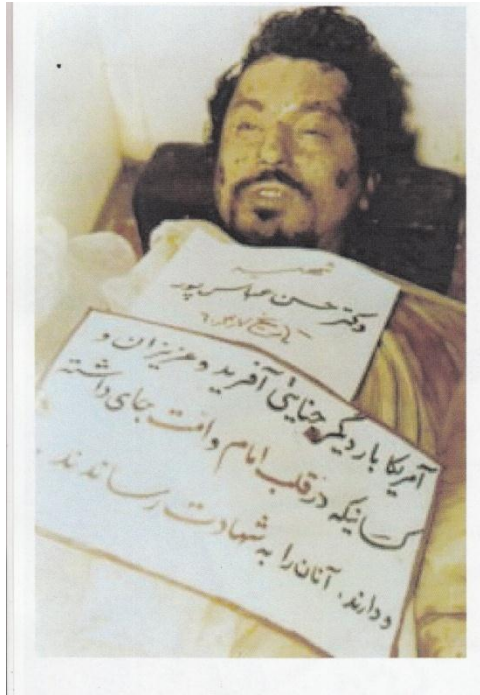 شهید
دکتر حسن عباس پور
آمریکا بار دیگر جنایتی آفرید و عزیزان و
کسانیکه در قلب امام و امت جای داشته
و دارند. آنان را به شهادت رساندند.